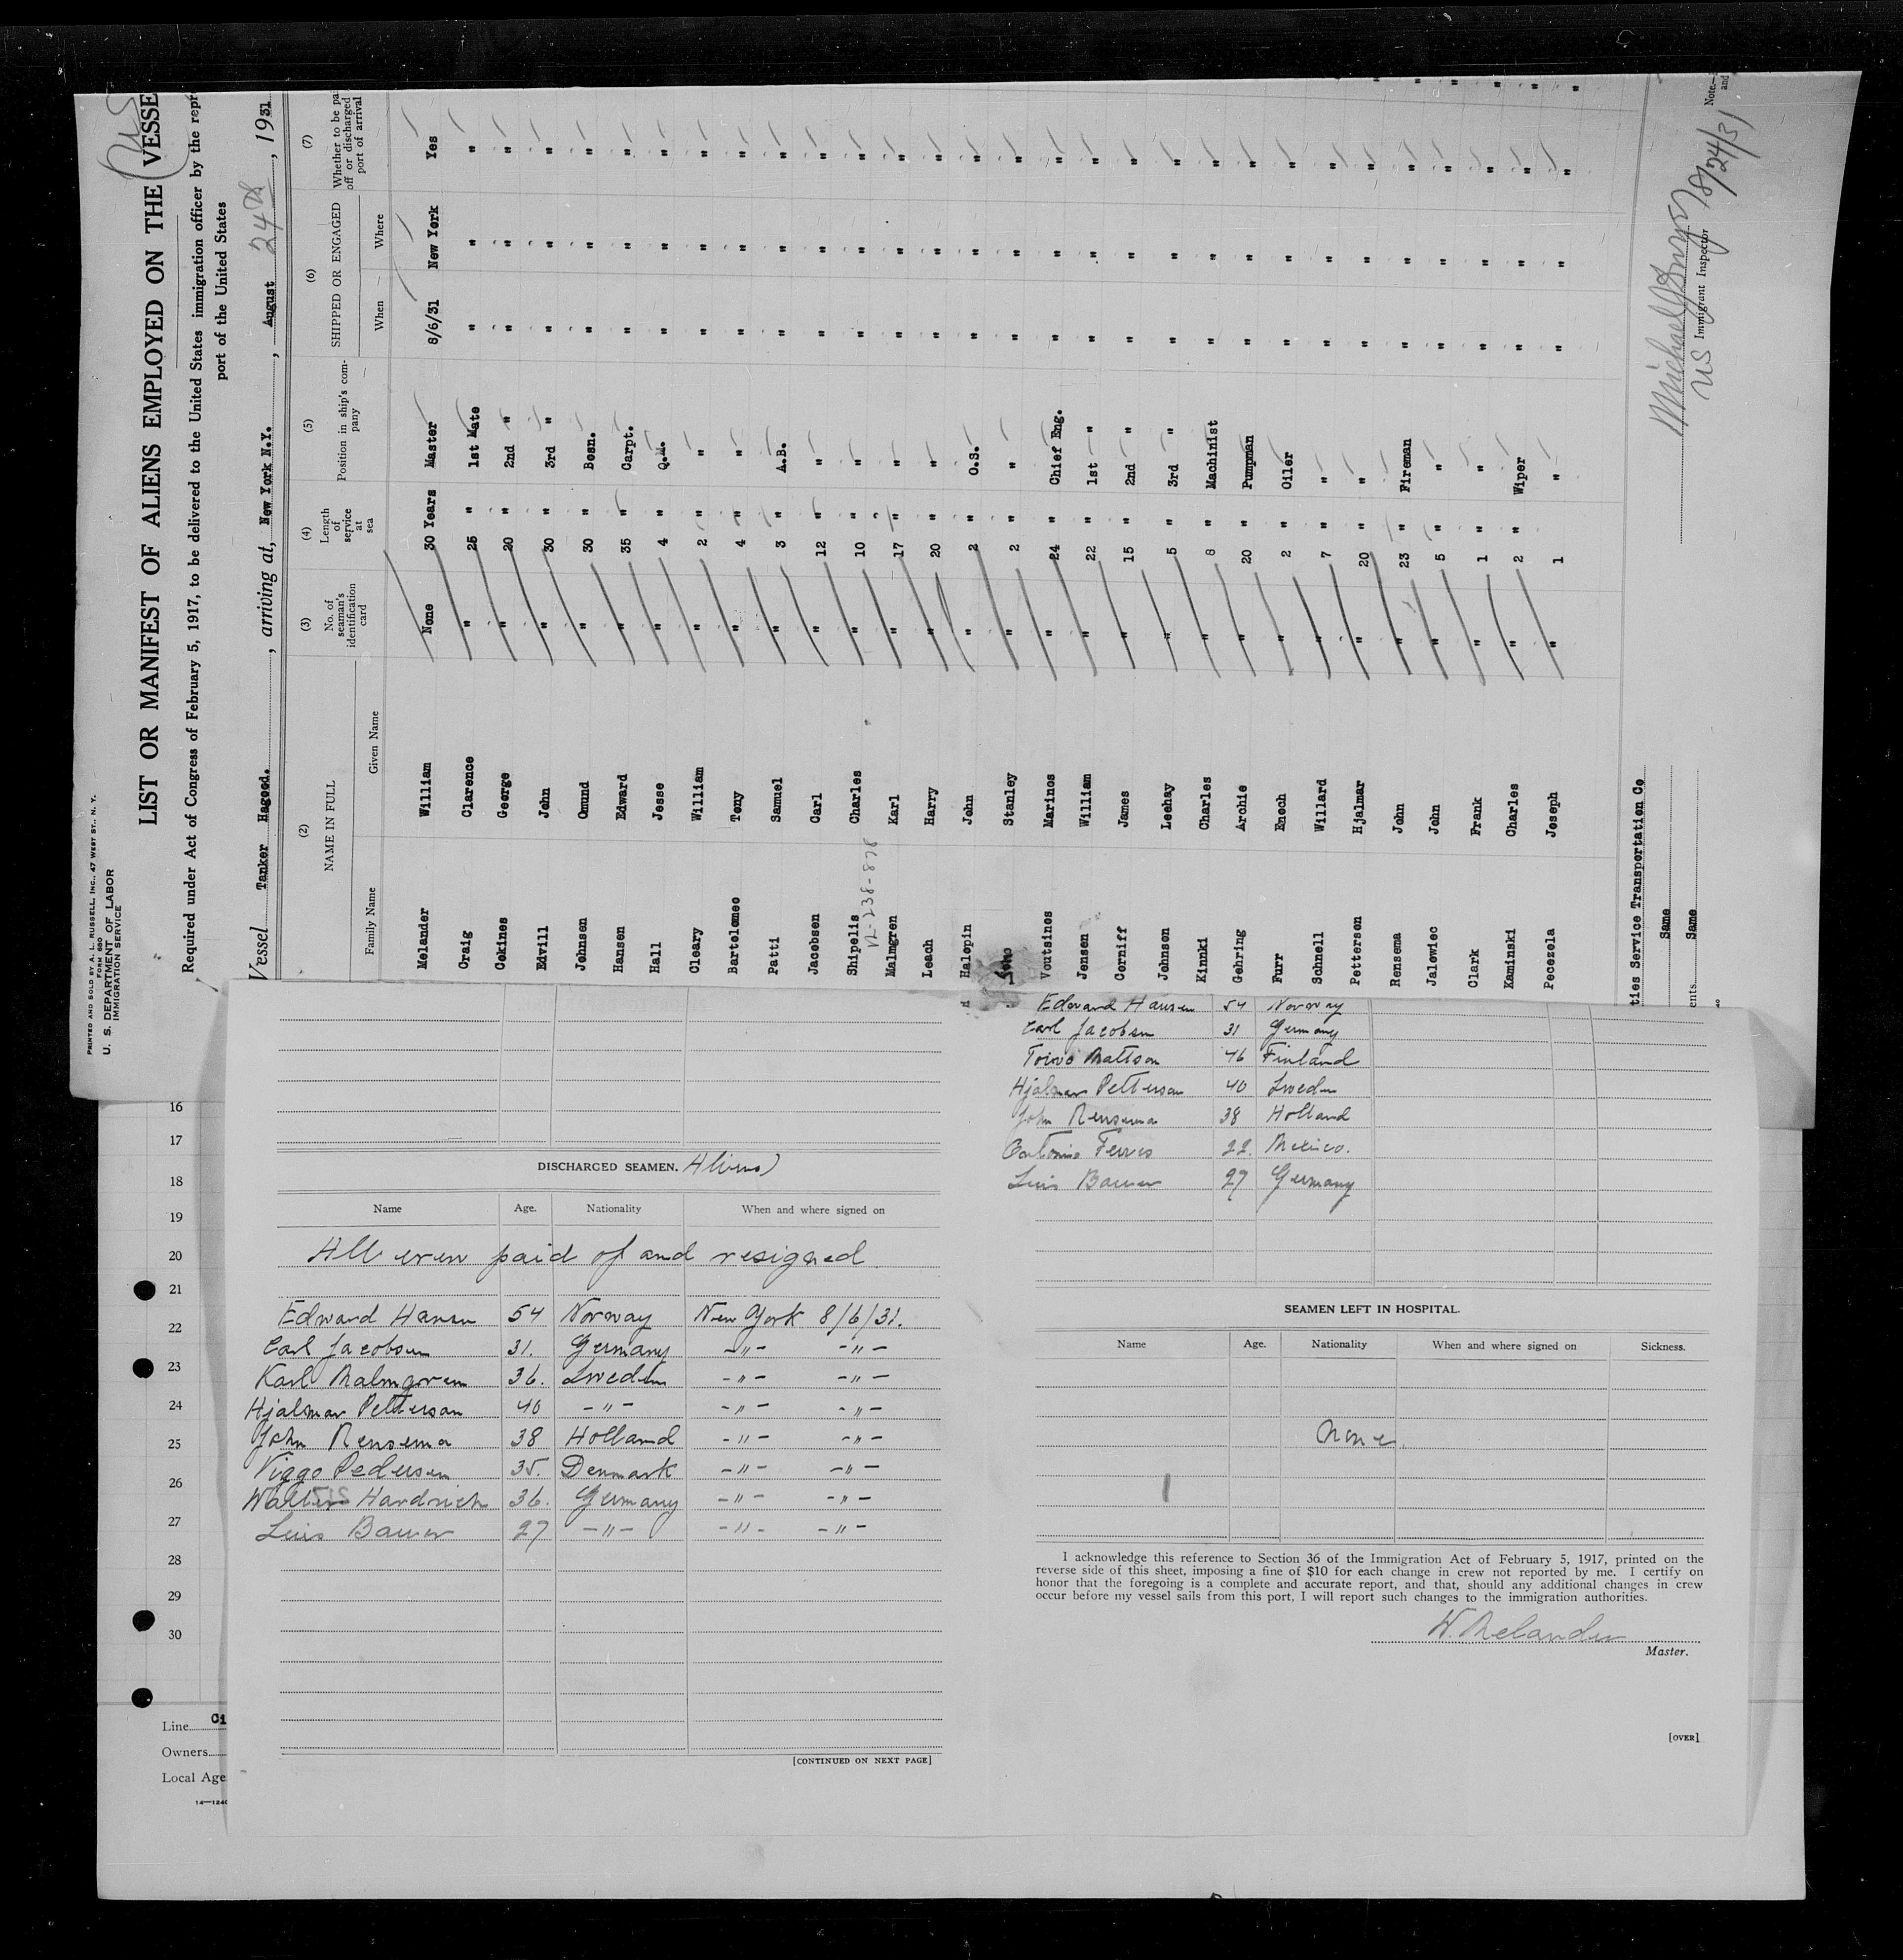 PRINTED AND SOLD BY A. L. RUSSELL, INC., 47 WEST ST., N. Y.
FORM 680
U. S. DEPARTMENT OF LABOR
IMMIGRATION SERVICE
LIST OR MANIFEST OF ALIENS EMPLOYED ON THE VESSE
Required under Act of Congress of February 5, 1917, to be delivered to the United States immigration officer by the repr
port of the United States
Vessel Tanker Hagood. , arriving at, New York N.Y. , August 24th , 1931
(2) (3) (4) (5) (6) (7)
NAME IN FULL No. of seaman's identification card Length of service at sea Position in ship's company SHIPPED OR ENGAGED Whether to be pai off or discharged port of arrival
Family Name Given Name When Where
Melander William None 30 Years Master 8/6/31 New York Yes
Craig Clarence " 25 " 1st Mate " " "
Cokines George " 20 " 2nd " " " "
Edvill John " 30 " 3rd " " " "
Johnsen Omund " 30 " Bosn. " " "
Hansen Edward " 35 " Carpt. " " "
Hall Jesse " 4 " Q.M. " " "
Cleary William " 2 " " " " "
Bartolomeo Tony " 4 " " " " "
Patti Samuel " 3 " A.B. " " "
Jacobsen Carl " 12 " " " " "
Shipelis Charles " 10 " " " " "
Malmgren Karl " 17 " " " " "
Leach Harry " 20 " " " " "
Halepin John " 2 " O.S. " " "
Stanley " 2 " " " " "
Voutsinos Marinos " 24 " Chief Eng. " " "
Jensen William " 22 " 1st " " " "
Corniff James " 15 " 2nd " " " "
Johnson Leehay " 5 " 3rd " " " "
Kinnki Charles " 8 " Machinist " " "
Gehring Archie " 20 " Pumpman " " "
Furr Enoch " 2 " Oiler " " "
Schnell Willard " 7 " " " " "
Petterson Hjalmar " 20 " " " " "
Rensema John " 23 " Fireman " " "
Jalowiec John " 5 " " " " "
Clark Frank " 1 " " " " "
Kaminski Charles " 2 " Wiper " " "
Pecezola Joseph " 1 " " " " "
ties Service Transportation Co
Same
ents. Same
US Immigrant Inspector 8/24/31
Note.—
and
16
17
18
19
20
21
22
23
24
25
26
27
28
29
30
Line Ci
Owners
Local Age
14—1240
DISCHARGED SEAMEN. Aliens)
Name Age. Nationality When and where signed on
All crew paid of and resigned
Edward Hansen 54 Norway New York 8/6/31.
Carl Jacobsen 31. Germany -"- -"-
Karl Malmgren 36. Sweden -"- -"-
Hjalmar Petterson 40 -"- -"- -"-
John Rensema 38 Holland -"- -"-
Viggo Pedersen 35. Denmark -"- -"-
Walter Hardrich 36. Germany -"- -"-
Luis Bauer 27 -"- -"- -"-
[CONTINUED ON NEXT PAGE]
Edward Hansen 54 Norway
Carl Jacobsen 31 Germany
Toivo Mattson 46 Finland
Hjalmar Petterson 40 Sweden
John Rensema 38 Holland
Antonio Ferres 22. Mexico.
Luis Bauer 27 Germany
SEAMEN LEFT IN HOSPITAL.
Name Age. Nationality When and where signed on Sickness.
None.
I acknowledge this reference to Section 36 of the Immigration Act of February 5, 1917, printed on the
reverse side of this sheet, imposing a fine of $10 for each change in crew not reported by me. I certify on
honor that the foregoing is a complete and accurate report, and that, should any additional changes in crew
occur before my vessel sails from this port, I will report such changes to the immigration authorities.
W. Melander
Master.
[OVER]